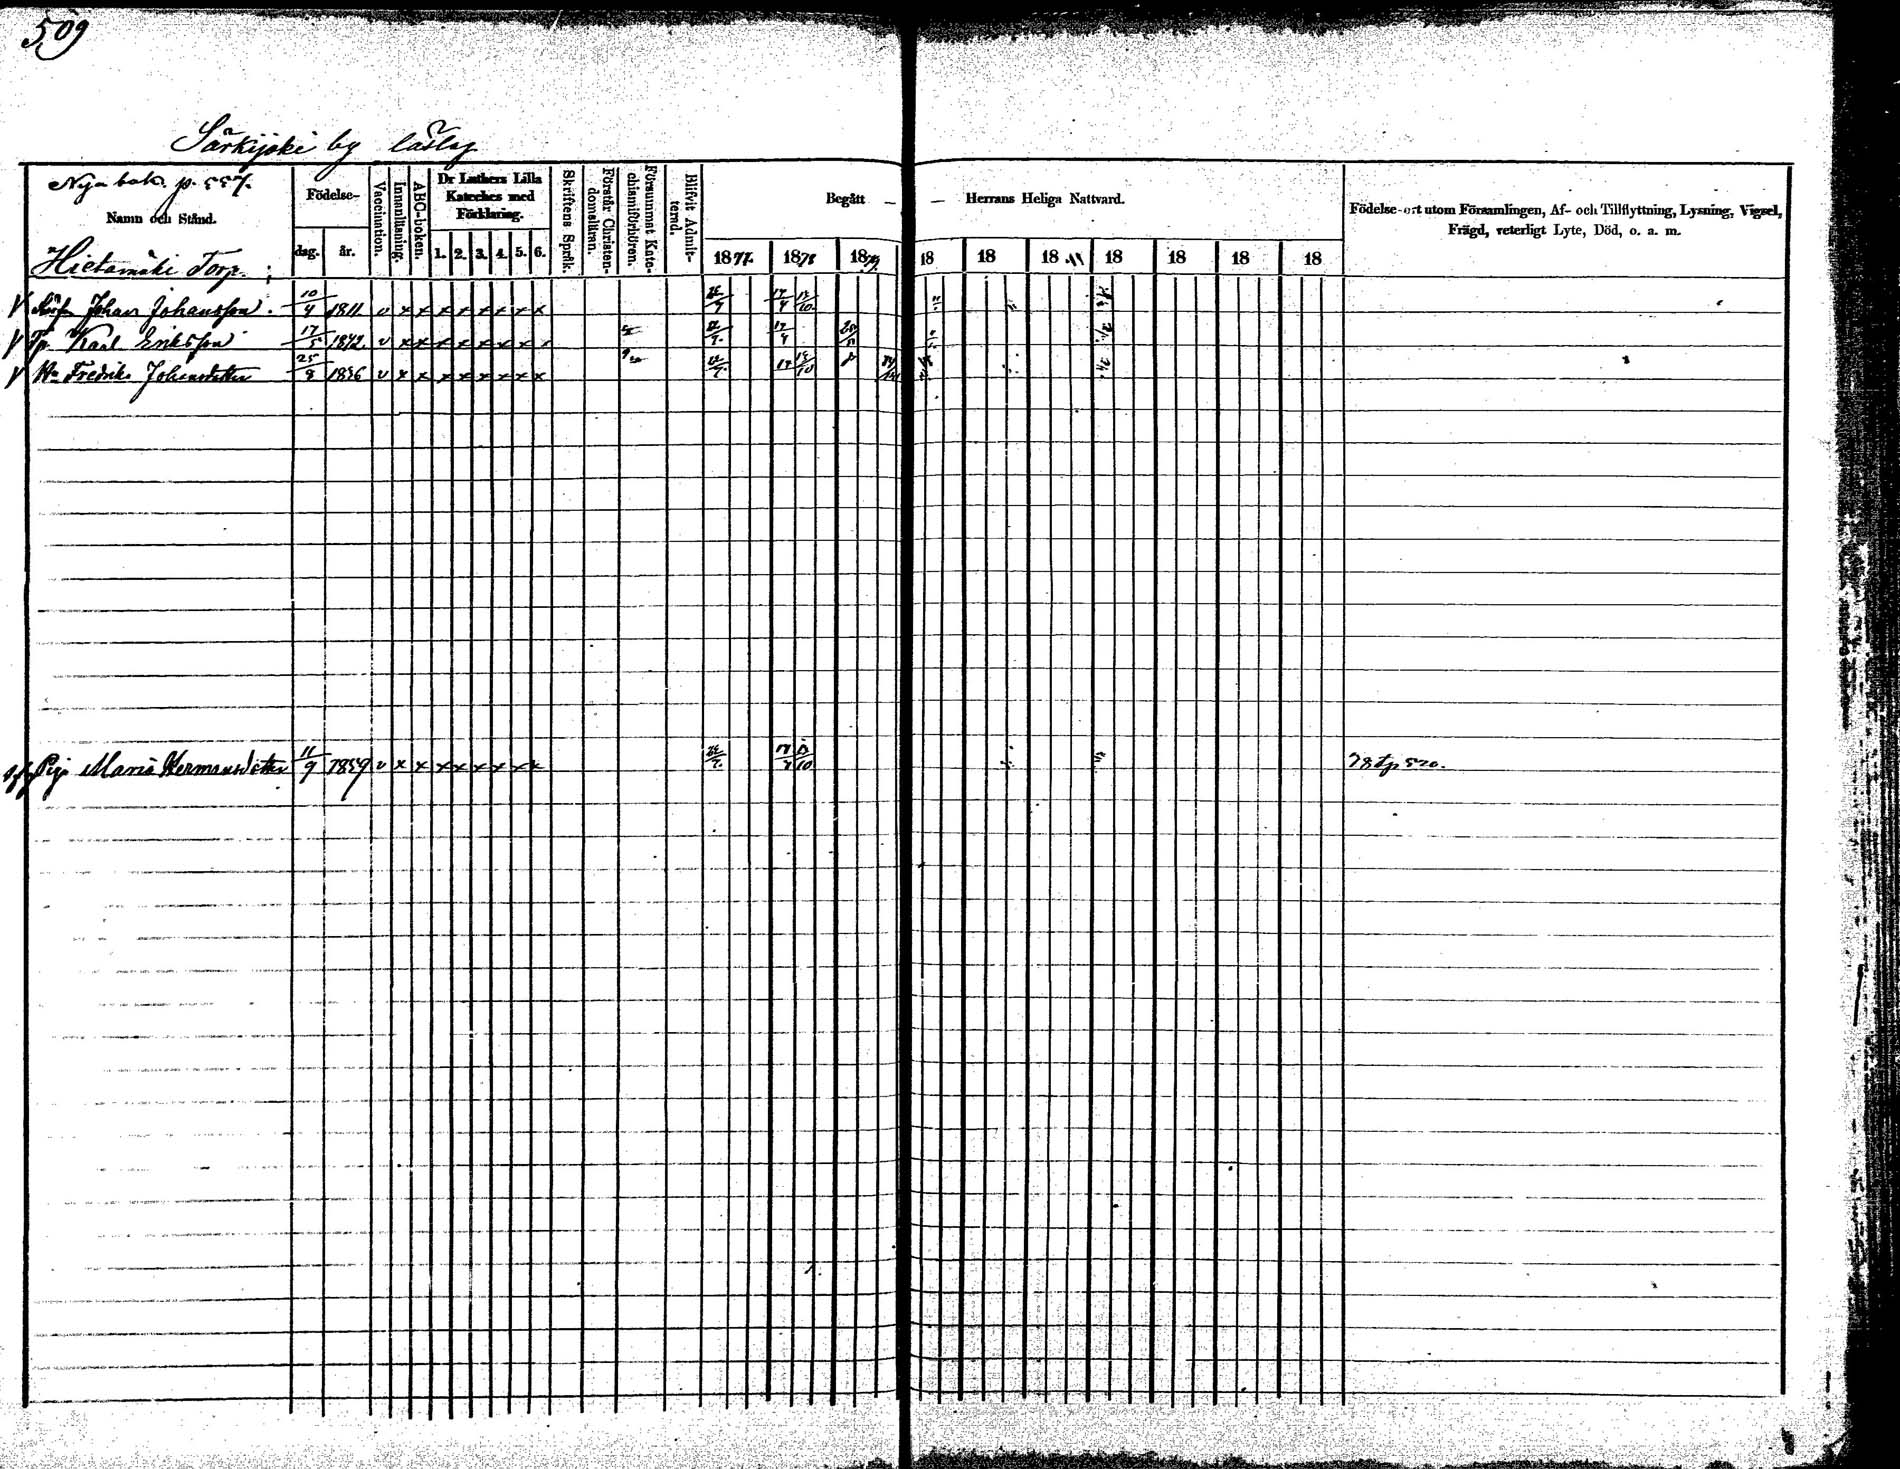 509
Särkijoki by läslag
Nya bok. p. 557.
Namn och Stånd.
Födelse-
dag. år.
Vaccination.
Innanläsning.
ABC-boken.
Dr Luthers Lilla Kateches med Förklaring.
1. 2. 3. 4. 5. 6.
Skriftens Språk.
Förstår Christendomsläran.
Försummat Katechismiförhören.
Blifvit Admitterad.
Begått — — Herrans Heliga Nattvard.
1877. 1878 1879. 18 18 18 18 18 18 18
Födelse-ort utom Församlingen, Af- och Tillflyttning, Lysning, Vigsel,
Frägd, veterligt Lyte, Död, o. a. m.
Hietamäki Torp.
Johan Johansson. 10/4 1811 v x x x x x x x x
Tp. Karl Eriksson 17/5 1842. v x x x x x x x
Hu Fredrika Johansdotter 25/8 1836 v x x x x x x x x
Pig. Maria Hermansdotter 11/9 1859 v x x x x x x x x 78 tp 520.